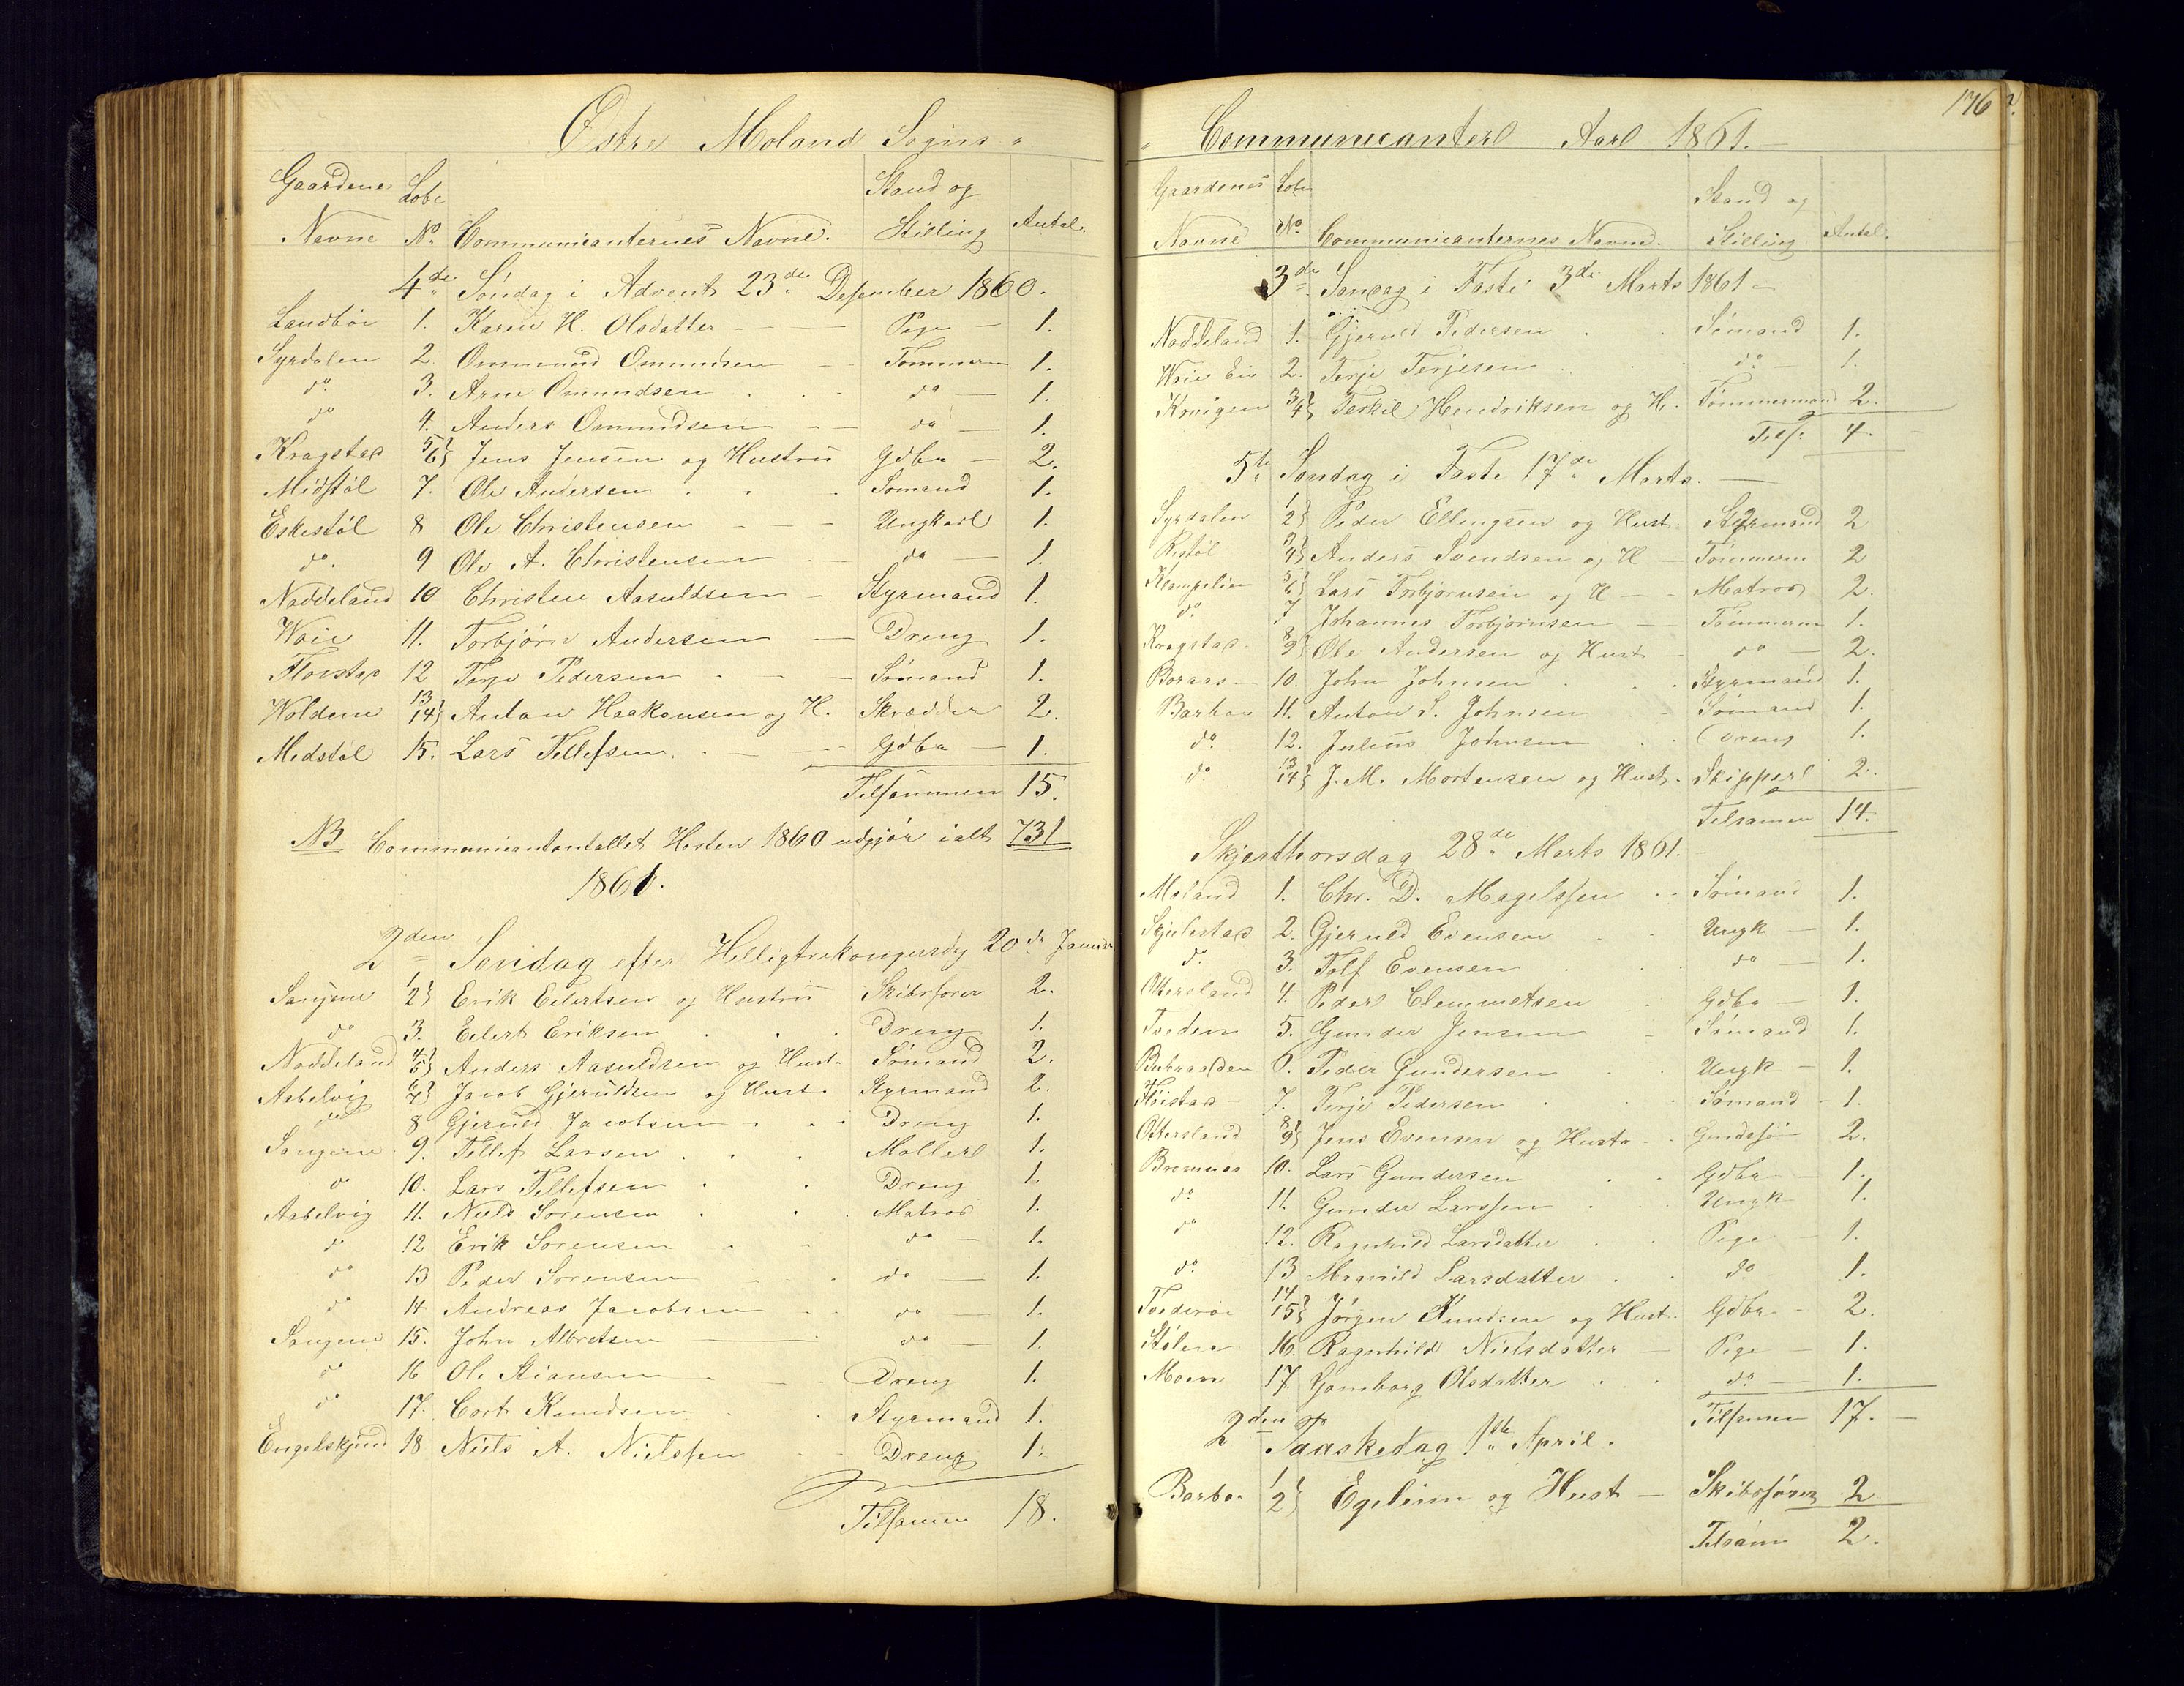 Østre Moland Sogns
Gaardenes Løbe Stand og
Navne No. Communicanternes Navne. Stilling Antal.
4de Søndag i Advent 23de Desember 1860.
Landbøe 1. Karen H. Olsdatter Pige 1.
Syrdalen 2. Ommund Omundsen Tømmerm 1.
do 3. Arne Omundsen do 1.
do 4. Anders Ommundsen do 1.
Kragstad 5/6 Jens Jensen og Hustru Gdbr 2.
Midstøl 7. Ole Andersen Sømand 1.
Eskestøl 8 Ole Christensen Ungkarl 1.
do. 9 Ole A. Christensen do 1.
Naddeland 10 Christen Aasuldsen Styrmand 1.
Waie 11. Torbjørn Andersen Dreng 1.
Floistad 12 Terje Pedersen Sømand 1.
Woldene 13/14 Anton Haakonsen og H. Skrædder 2.
Midstøl 15. Lars Tellefsen Gdbr 1.
Tilsammen 15.
NB Communicantantallet Høsten 1860 udgjør ialt 731
1861.
2den Søndag efter Helligtrekongersdg 20de Januar
Sangene 1/2 Erik Eilertsen og Hustru Skibsfører 2.
do 3. Eilert Eriksen Dreng 1.
Naddeland 4/5 Anders Aasuldsen og Hust. Sømand 2.
Aabelvig 6/7 Jacob Gjeruldsen og Hust. Styrmand 2.
do 8 Gjeruld Jacobsen Dreng 1.
Sangene 9. Tellef Larsen Møller 1.
do 10. Lars Tellefsen Dreng 1.
Aabelvig 11. Niels Sørensen Matros 1.
do 12 Erik Sørensen do 1.
do 13 Peder Sørensen do 1.
do 14 Andreas Jacobsen do 1.
Sangene 15. John Albretsen do 1.
do 16 Ole Stiansen Dreng 1.
do 17. Cort Knudsen Styrmand 1.
Engelskjønd 18 Niels A. Nielssen Dreng 1.
Tilsamen 18.
176
Communicanter Aar 1861.
Gaardenes Løbe Stand og
Navne No. Communicanternes Navne. Stilling Antal.
3de Søndag i Faste 3de Marts 1861
Naddeland 1. Gjeruld Pedersen Sømand 1.
Waie Eie 2. Terje Terjesen do 1.
3/4 Terkil Hendriksen og H. Tømmermand 2.
Tils: 4.
5te Søndag i Faste 17de Marts.
Syrdalen 1/2 Peder Ellingsen og Hust. Styrmand 2
Ristøl 3/4 Anders Svendsen og H Tømmerm 2
5/6 Lars Torbjørnsen og H Matros 2.
do. 7 Johannes Torbjørnsen Tømmerm 1.
Kragstad 8/9 Ole Andersen og Hust do 2.
Boraas 10. John Johnsen Styrmand 1.
Barboe 11. Anton S. Johnsen Sømand 1.
do. 12. Julius Johnsen Dreng 1.
do. 13/14 J. M. Mortensen og Hust. Skipper 2.
Tilsamen 14.
Skjærthorsdag 28de Marts 1861.
Moland 1. Chr. D. Magelssen Sømand 1.
Skjulestad 2. Gjeruld Evensen Ungk 1.
do. 3. Tolf Evensen do 1.
Ottersland 4. Peder Clemmetsen Gdbr 1.
Tveden 5. Gunder Jensen Sømand 1.
6. Peder Gundersen Ungk 1.
Floistad 7. Terje Pedersen Sømand 1.
Ottersland 8/9 Jens Evensen og Hustr 2.
Bromnes 10. Lars Gundersen Gdbr 1.
do 11. Gunder Larssen Ungk 1.
do 12. Ragnhild Larsdatter Pige 1.
do. 13 Magnild Larsdatter do 1.
14/15 Jørgen Knudsen og Hust. Gdbr 2.
Stølen 16. Ragnhild Nielsdatter Pige 1.
Moen 17. Gomborg Olsdatter do. 1.
Tilsamen 17.
2den Paaskedag 1ste April.
Barboe 1/2 Egelium og Hust Skibsfører 2
Tilsam 2.